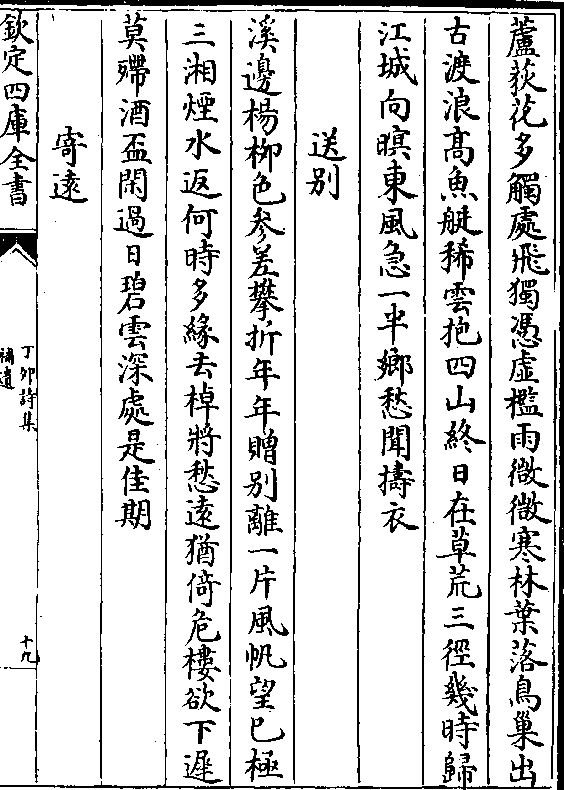 蘆荻花多觸處飛獨憑虛檻雨微微寒林葉落鳥巢出
古渡浪髙魚艇稀雲抱四山終日在草荒三徑幾時歸
江城向暝東風急一半鄉愁聞擣衣
送别
溪邊楊柳色参差攀折年年贈别離一片風帆望已極
三湘煙水返何時多緣去棹將愁遠猶倚危樓欲下遲
莫殢酒盃閑過日碧雲深處是佳期
寄遠
欽定四庫全書
丁卯詩集
補遺
十九